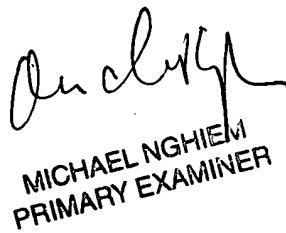 MICHAEL NGHIEM
PRIMARY EXAMINER